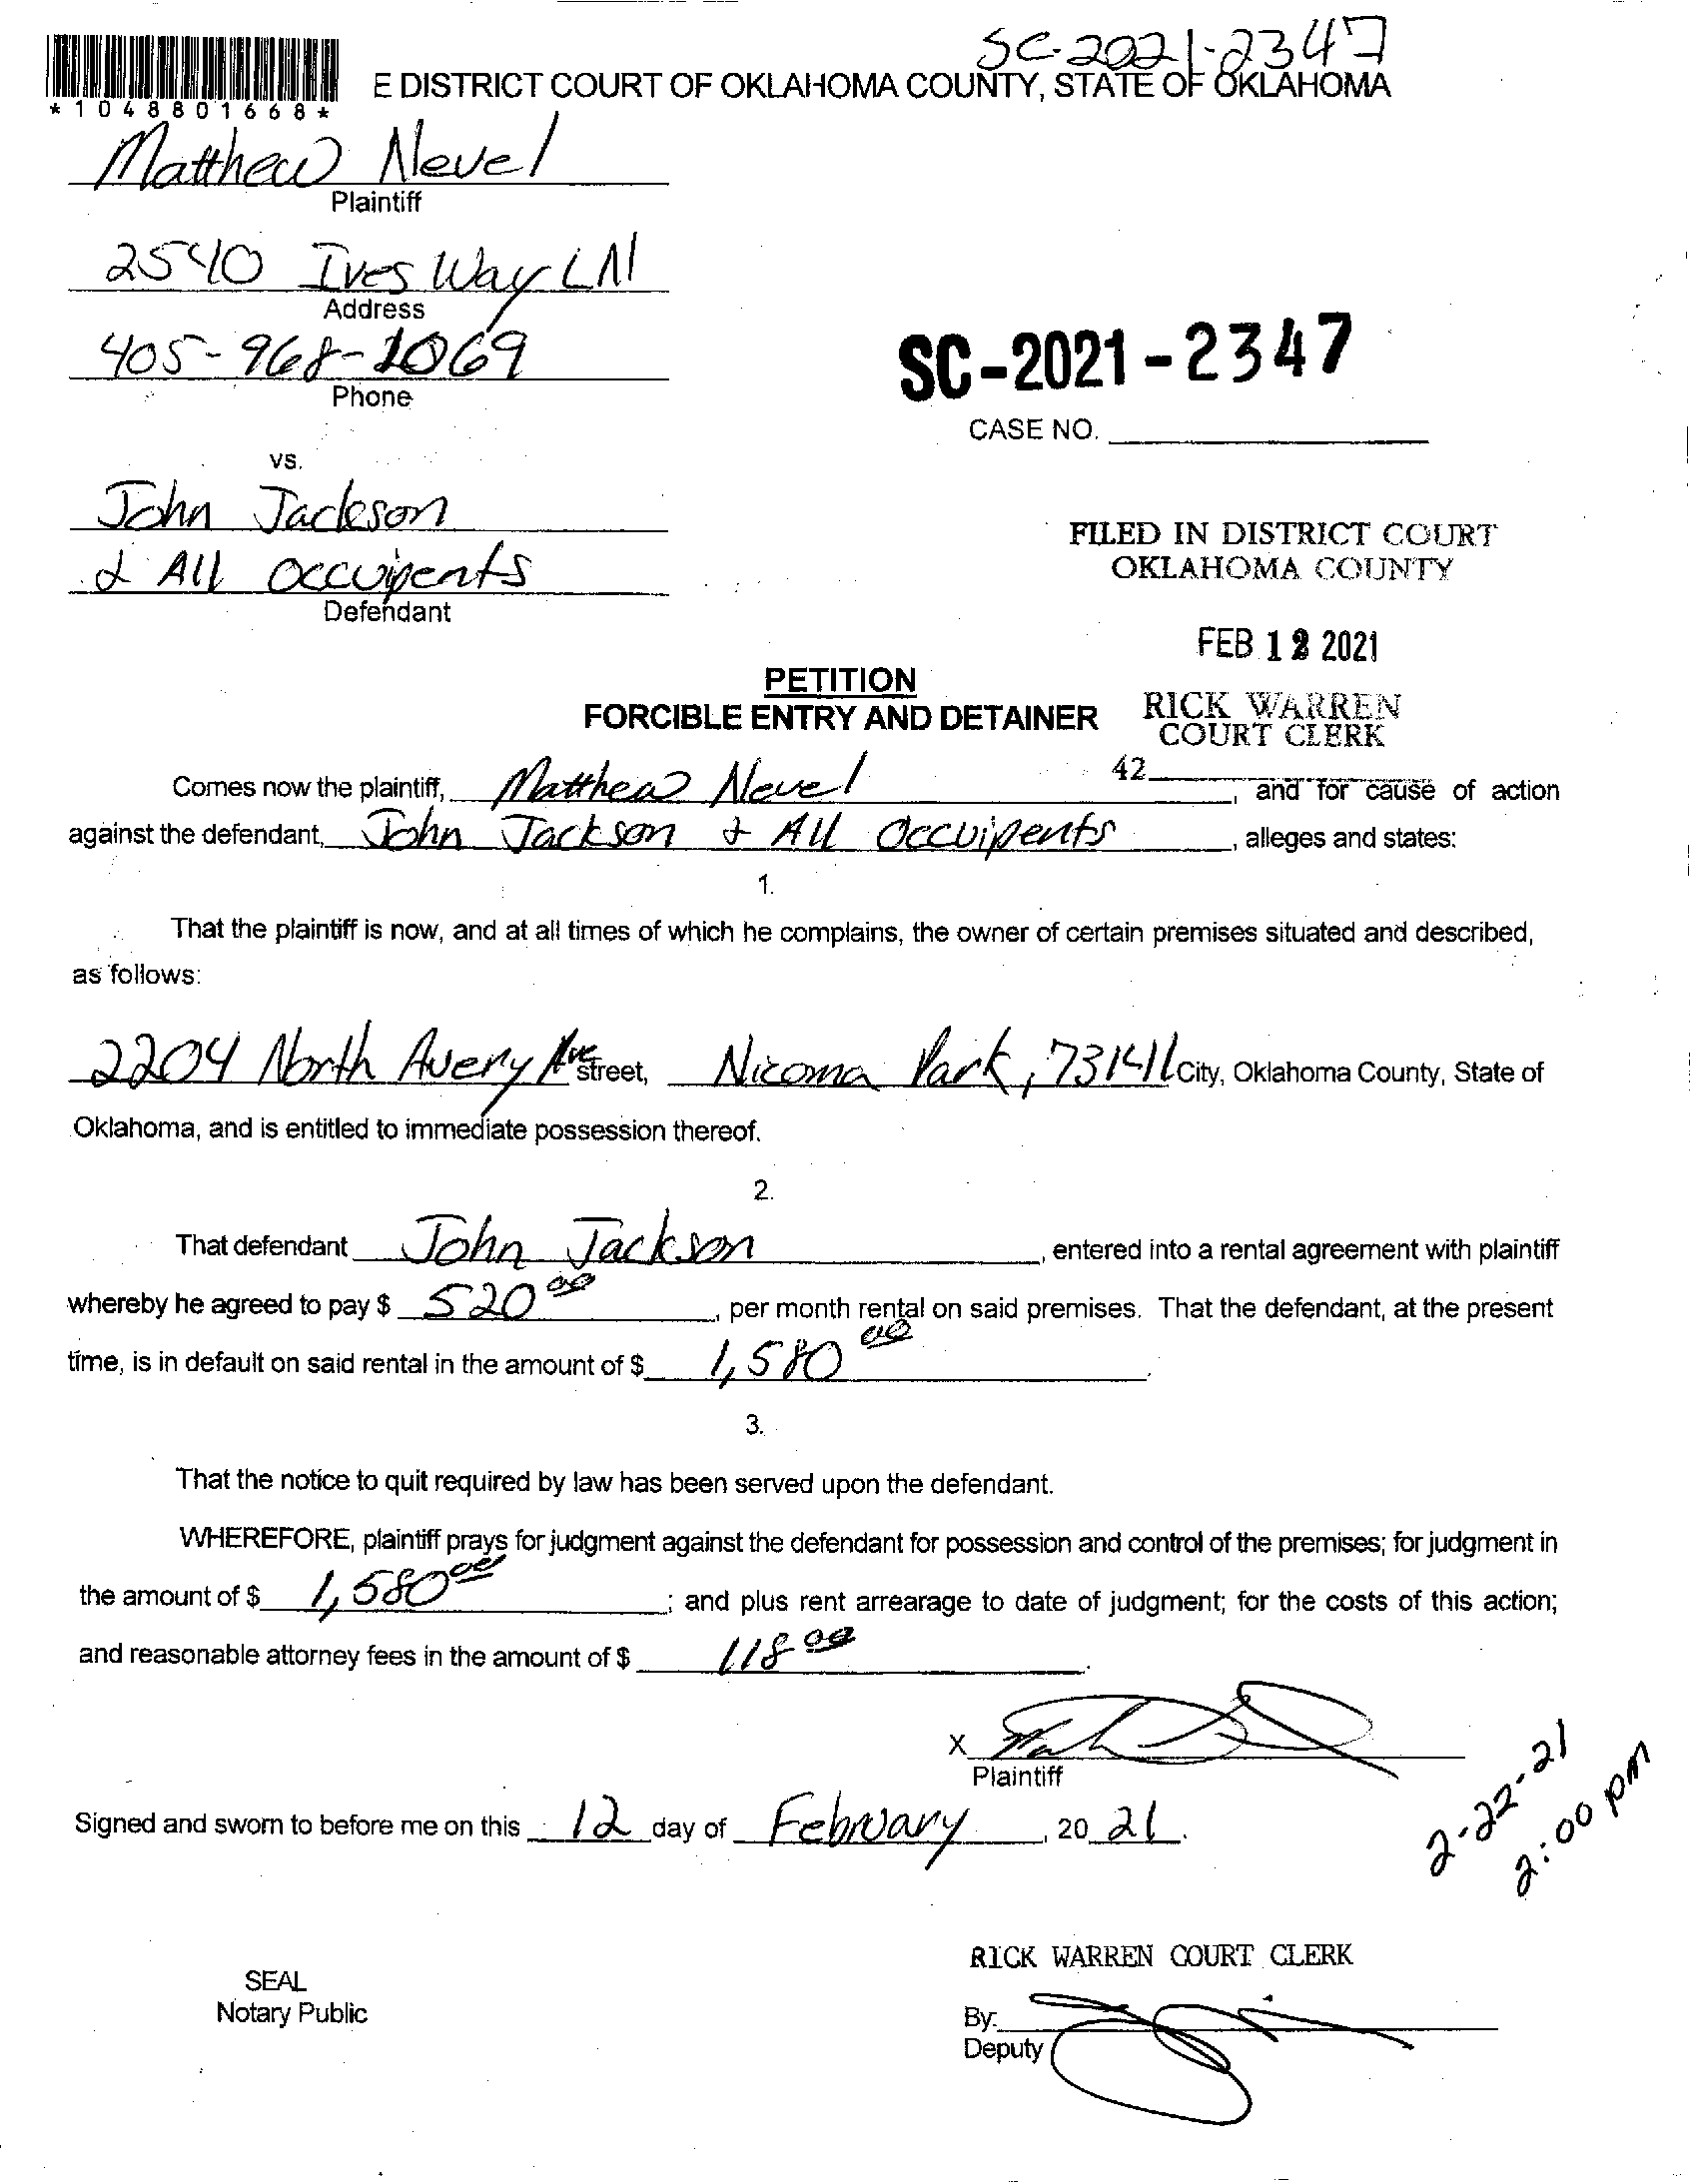 SC-2021-2347
E DISTRICT COURT OF OKLAHOMA COUNTY, STATE OF OKLAHOMA
*1048801668*
Matthew Nevel
Plaintiff
2540 Ives Way LN
Address
405-968-1069
Phone
SC-2021-2347
CASE NO.
vs.
John Jackson
& All Occuipents
Defendant
FILED IN DISTRICT COURT
OKLAHOMA COUNTY
FEB 12 2021
RICK WARREN
COURT CLERK
42
PETITION
FORCIBLE ENTRY AND DETAINER
Comes now the plaintiff, Matthew Nevel, and for cause of action
against the defendant, John Jackson & All Occuipents, alleges and states:
1.
That the plaintiff is now, and at all times of which he complains, the owner of certain premises situated and described,
as follows:
2204 North Avery Ave Street, Nicoma Park, 73141 City, Oklahoma County, State of
Oklahoma, and is entitled to immediate possession thereof.
2.
That defendant John Jackson, entered into a rental agreement with plaintiff
whereby he agreed to pay $ 520 00, per month rental on said premises. That the defendant, at the present
time, is in default on said rental in the amount of $ 1,580 00.
3.
That the notice to quit required by law has been served upon the defendant.
WHEREFORE, plaintiff prays for judgment against the defendant for possession and control of the premises; for judgment in
the amount of $ 1,580 00; and plus rent arrearage to date of judgment; for the costs of this action;
and reasonable attorney fees in the amount of $ 118 00.
X
Plaintiff
Signed and sworn to before me on this 12 day of February, 20 21.
2-22-21
2:00 PM
RICK WARREN COURT CLERK
SEAL
Notary Public
By:
Deputy